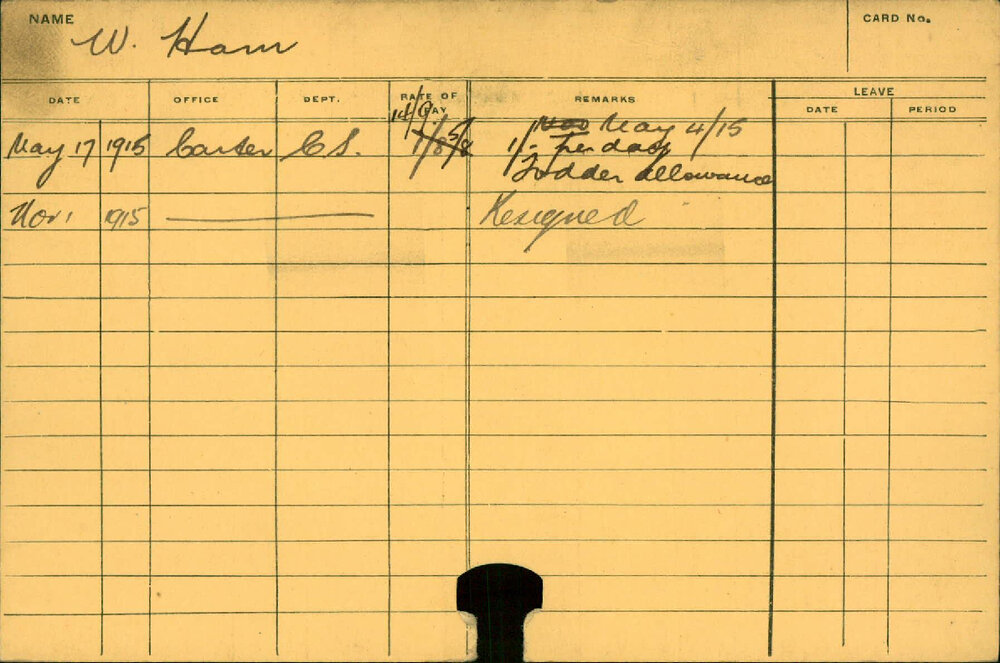 NAME
W. Ham
CARD No.
DATE OFFICE DEPT. RATE OF PAY REMARKS LEAVE
DATE PERIOD
14/9
May 4/15
May 17 1915 Carter C.S. 5/8 1/- per day
Fodder Allowance
Nov 1 1915 Resigned